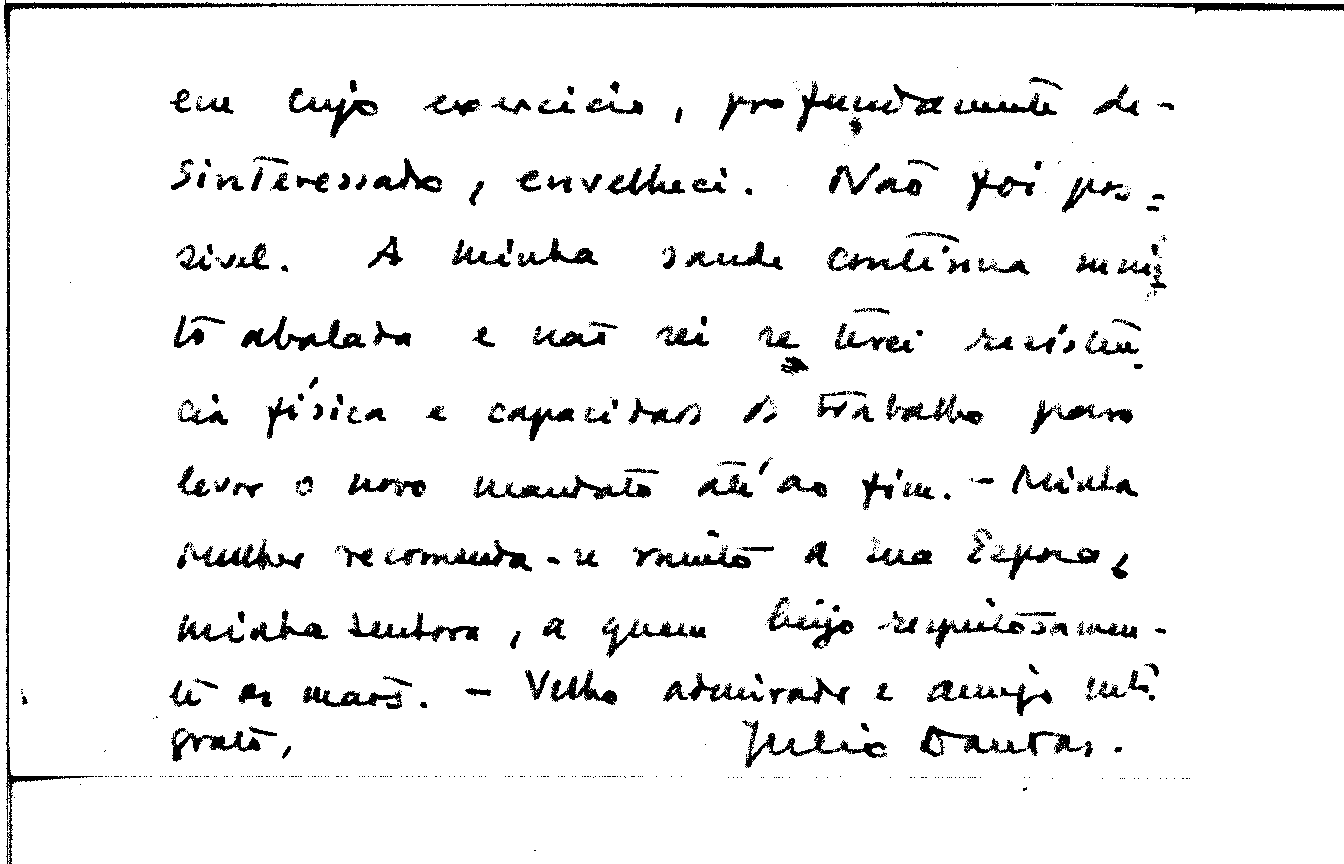 em cujo exercicio, profundamente de-
sinteressado, envelheci. Não foi pos=
sivel. A minha saude continua mui=
to abalada e não sei se terei resisten-
cia física e capacidade de trabalho para
levar o novo mandato até ao fim. - Minha
mulher recomenda-se muito a sua Esposa,
minha senhora, a quem beijo respeitosamen-
te as mãos. - Velho admirador e amigo mto.
grato,
Julio Dantas.